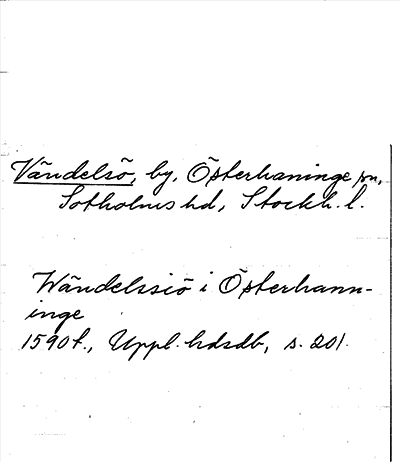 Vändelsö, by, Österhaninge sn,
Sotholms hd, Stockh. l.
Wändelssiö i Österhann-
inge
1590 f., Uppl. hdsdb, s. 201.